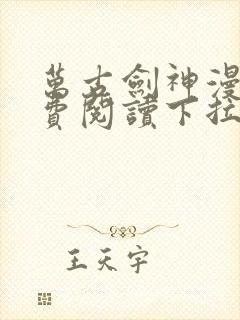 萬古劍神漫
費閱讀下拉
王天宇